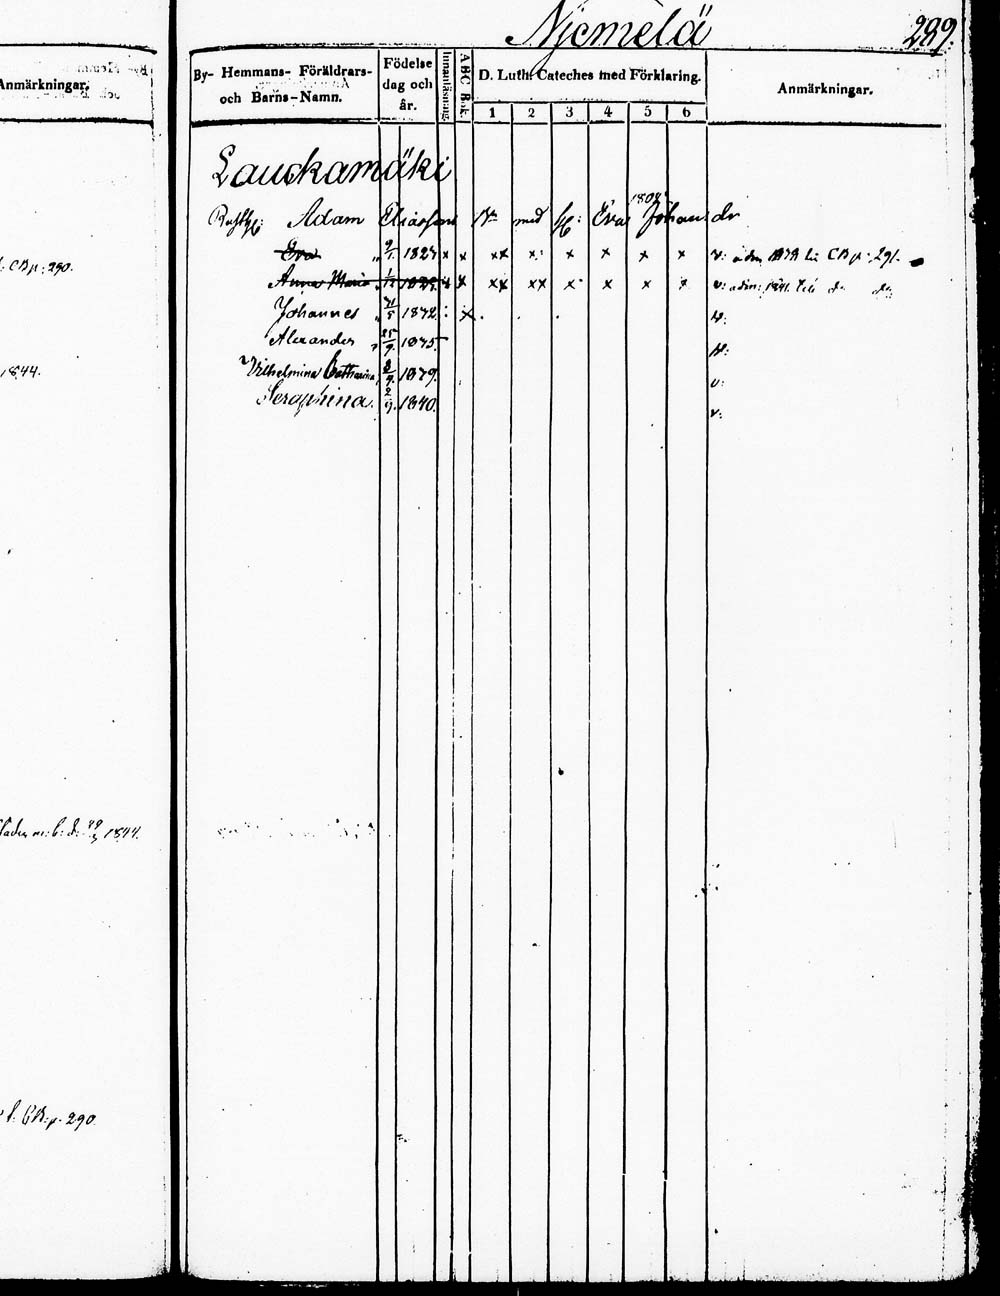 Anmärkningar.
l: CB p: 290.
1844.
1844.
l: CB: p. 290.
Njemelä
289.
By- Hemmans- Föräldrars- och Barns-Namn.
Födelse dag och år.
Innanläsning.
ABC Bok.
D. Luth. Cateches med Förklaring.
1 2 3 4 5 6
Anmärkningar.
Lauckamäki
Adam Eliasson med H: Eva Johansdr
1808
Eva " 9/1. 1827 x x xx x: x x x x v: adm 1839 CB p: 291.
Anna Maria x x xx xx x x x x v: adm: 1841.
Johannes " 1832. : x v:
Alexander " 25/9. 1835 v:
Vilhelmina Catharina 8/9. 1839. v:
Seraphina. 2/9. 1840. v: